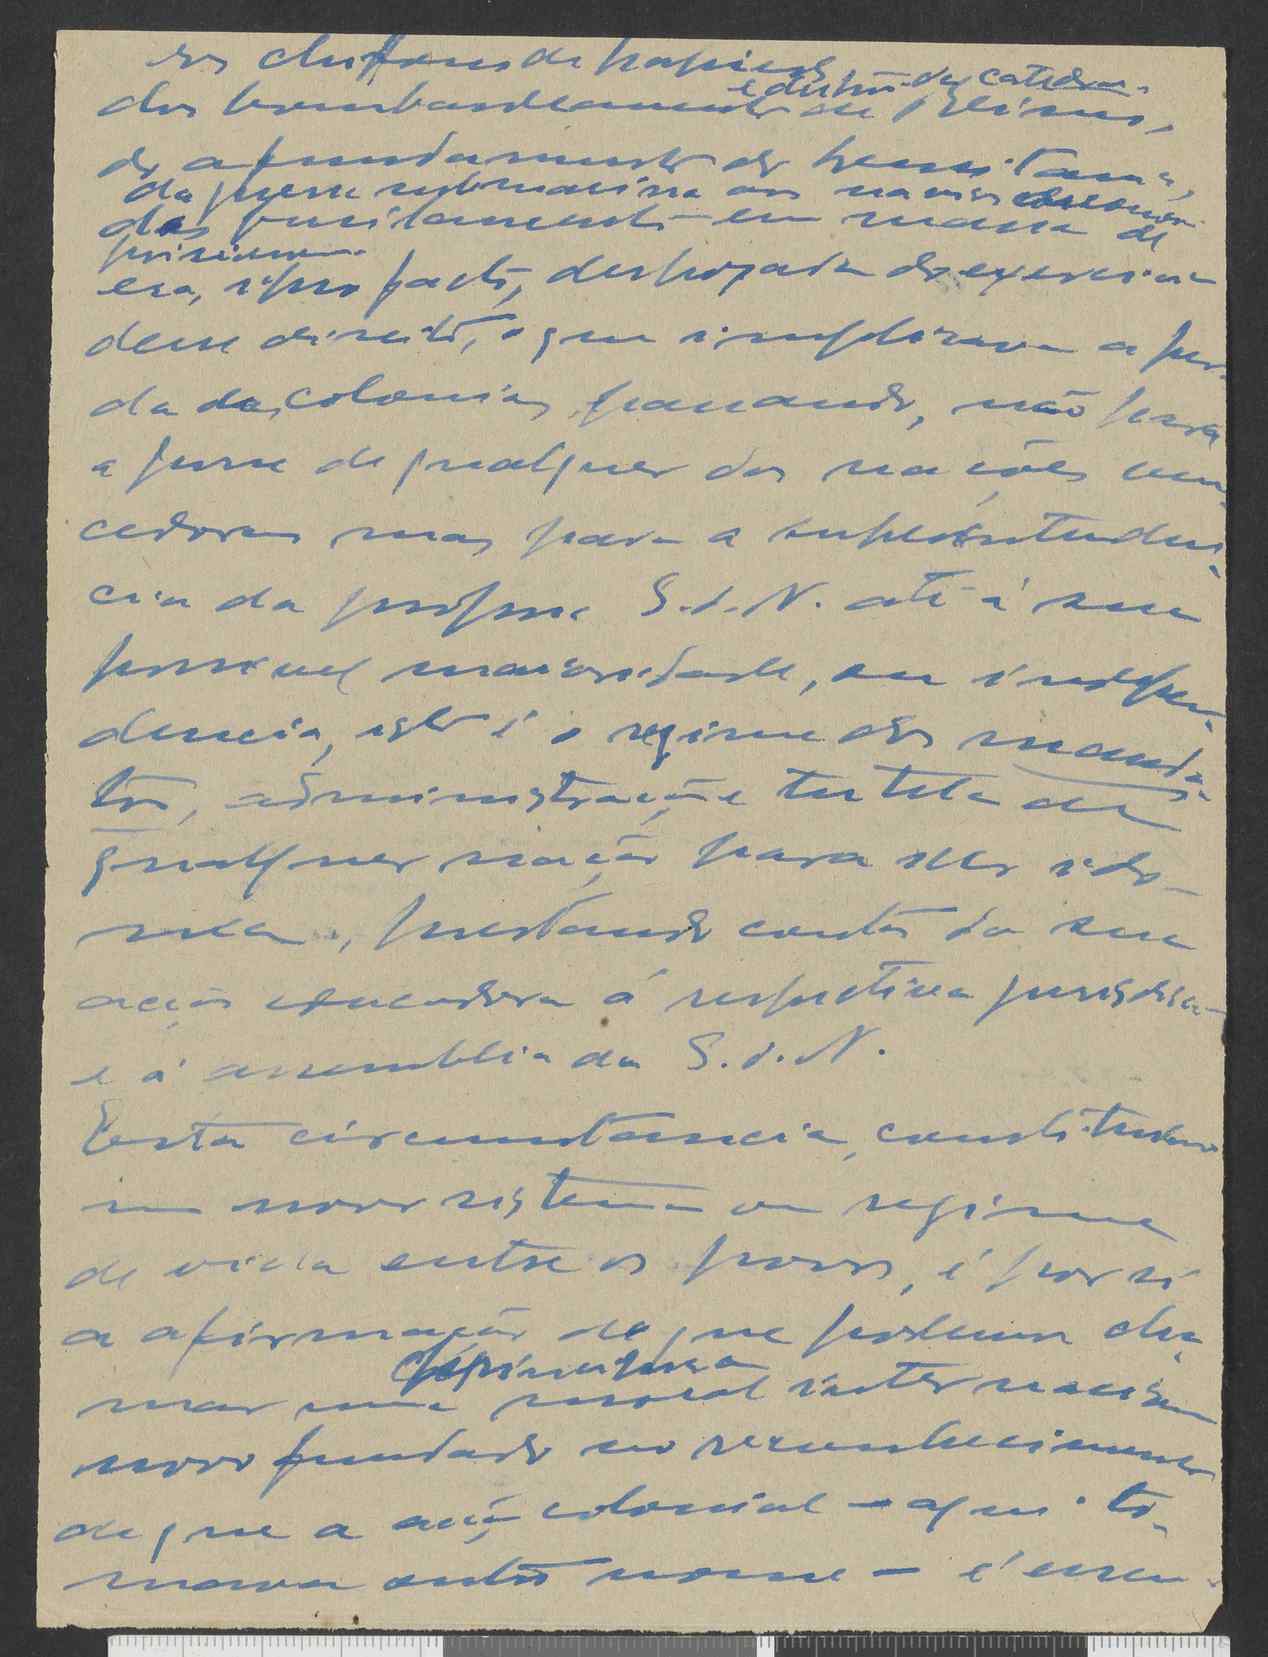 os chiffons de papier
e destruição da catedral
dos bombardeamentos de Reims,
do afundamento do Lusitania,
da guerra submarina aos navios
dos fusilamentos em massa de
prisioneiros
era, ipso facto, despojada do exercicio
desse direito, o que implicava a per-
da das colonias passando, não para
a posse de qualquer das nações ven-
cedoras mas para a superintenden-
cia da propria S.d.N. até á sua
possivel maioridade, ou indepen-
dencia, isto é o regime dos manda-
tos, administração e tutela de
qualquer nação para isso ido-
nea, prestando contas da sua
acção educadora á respectiva
e á assembleia da S.d.N.
Esta circumstancia, constituindo
um novo sistema ou regime
de vida entre os povos, é por si
a afirmação do que podemos cha-
mar uma moral internacional
novo fundado no reconhecimento
de que a acção colonial — aqui to-
mava outro nome — é essen-